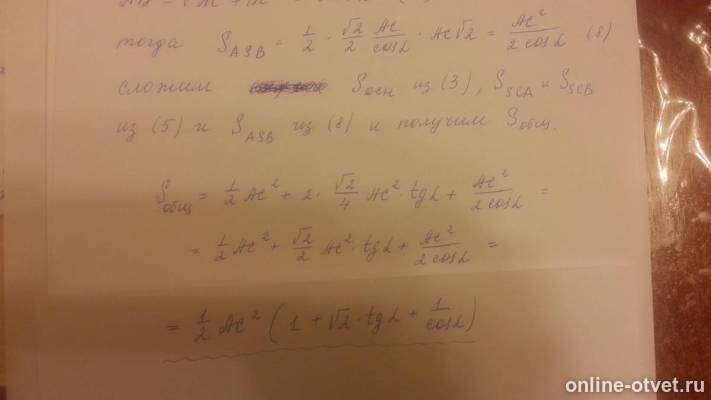 тогда S_ASB = 1/2 · √2/2 AC/cosα · AC√2 = AC²/(2 cosα) (8)
сложим S_осн из (3), S_SCA и S_SCB
из (5) и S_ASB из (8) и получим S_общ.
S_общ = 1/2 AC² + 2 · √2/4 AC² · tgα + AC²/(2 cosα) =
= 1/2 AC² + √2/2 AC² · tgα + AC²/(2 cosα) =
= 1/2 AC² (1 + √2 · tgα + 1/cosα)
online-otvet.ru